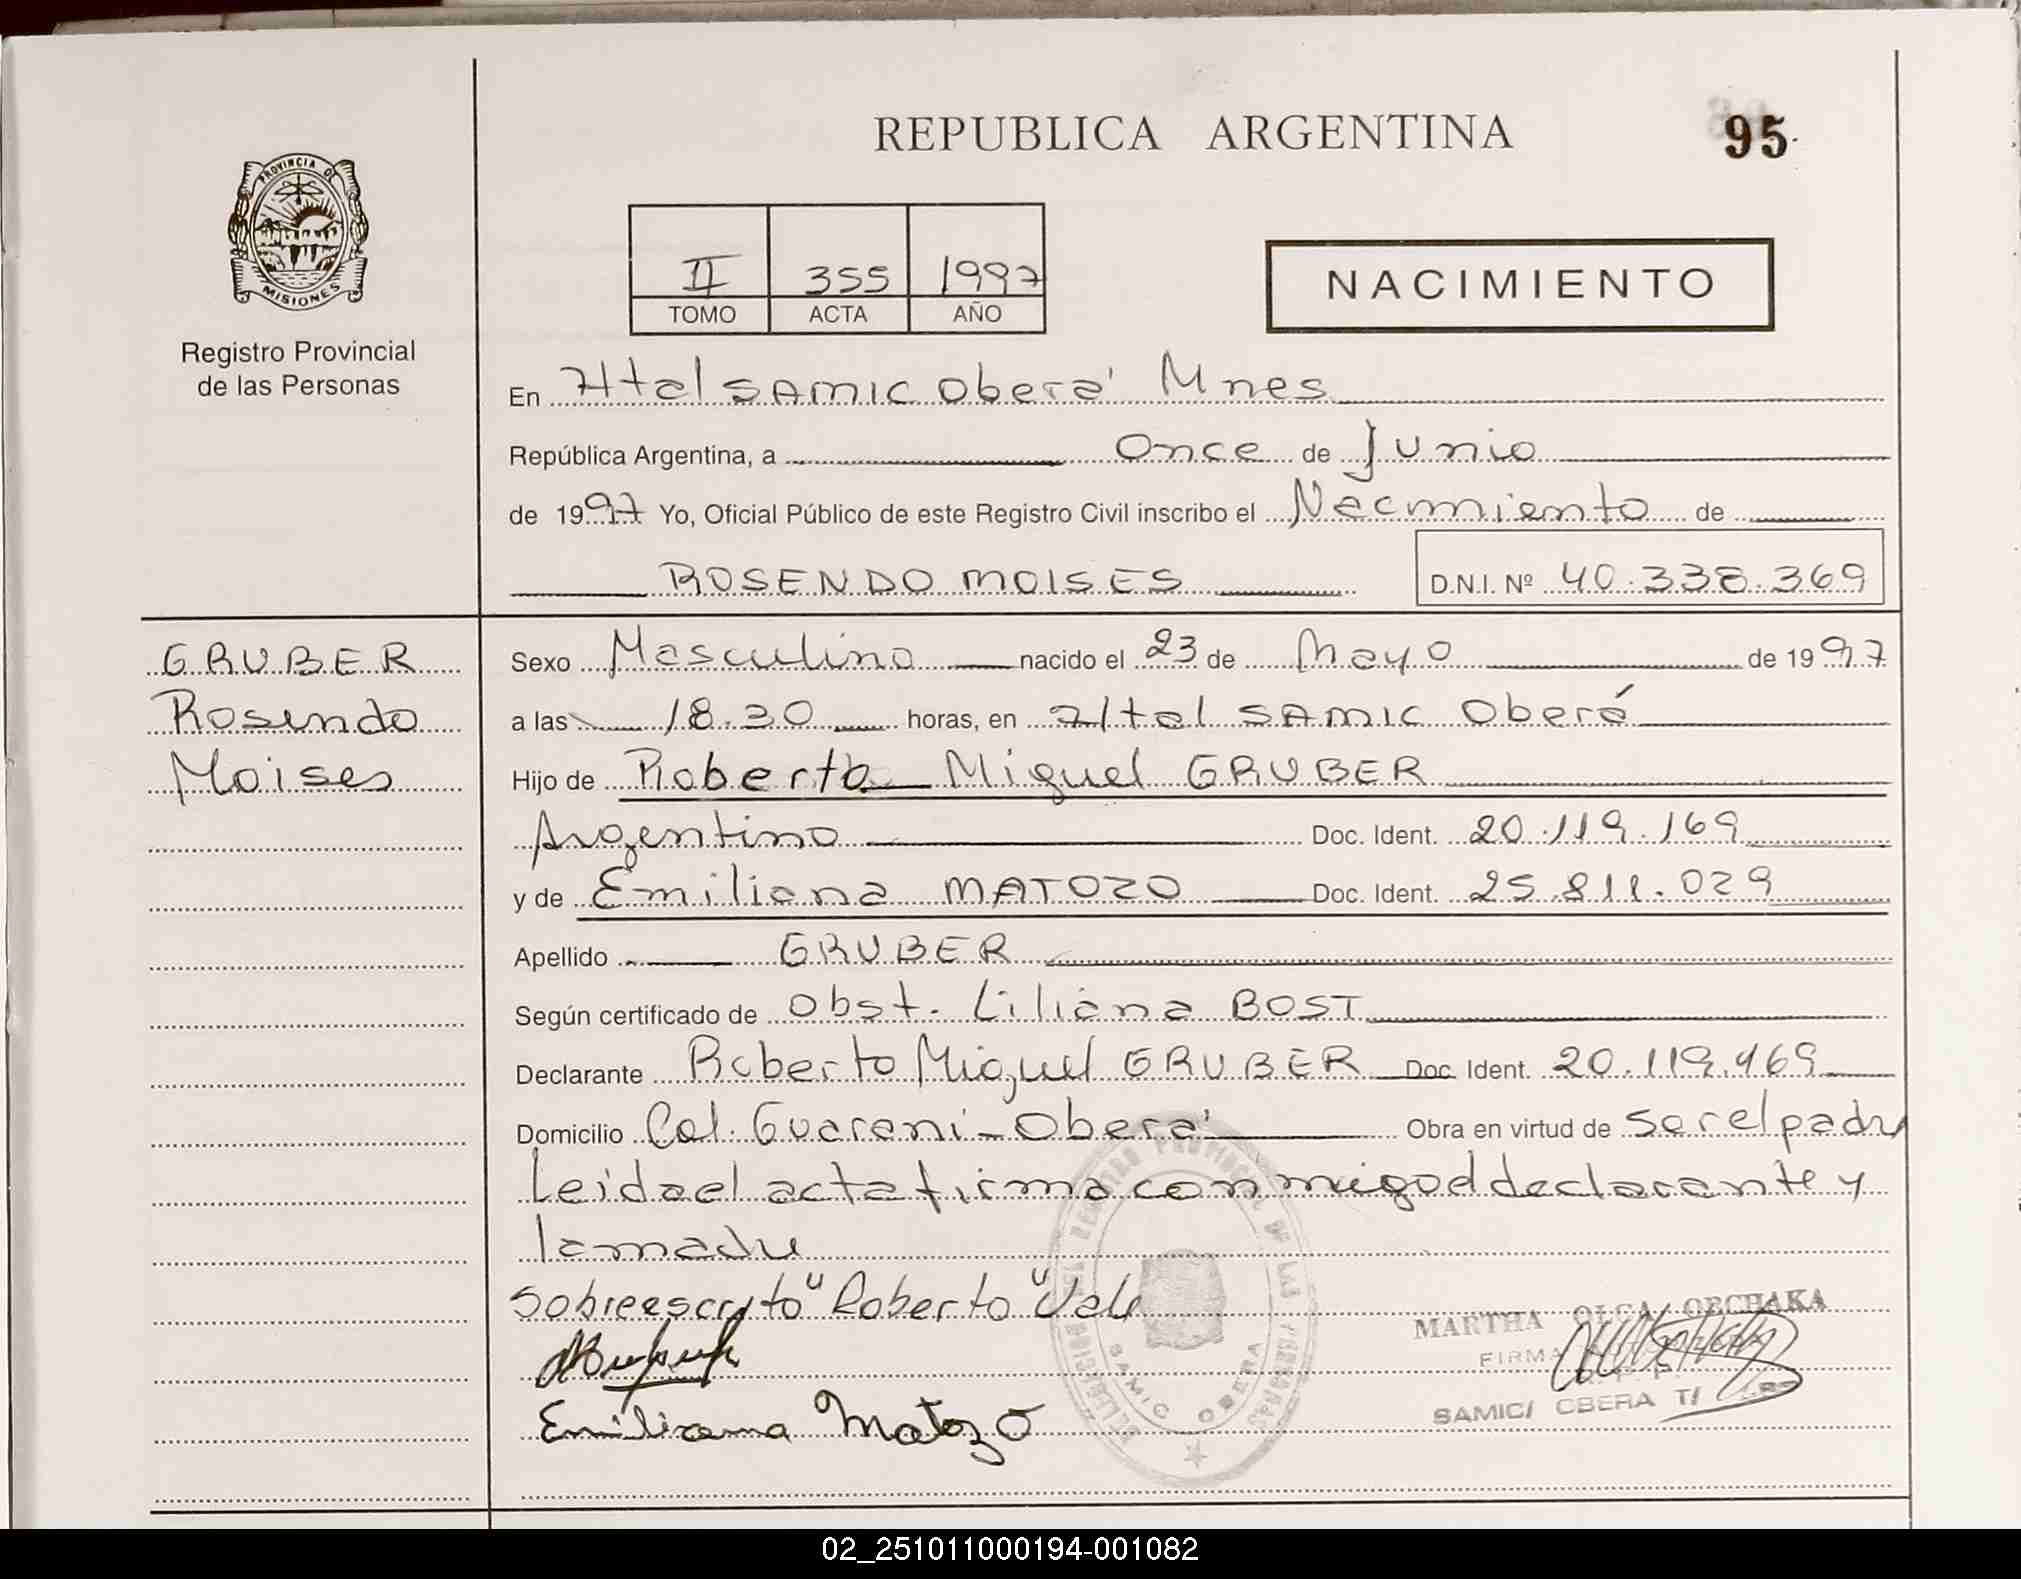 REPUBLICA ARGENTINA
95
PROVINCIA DE
MISIONES
Registro Provincial
de las Personas
II 355 1997
TOMO ACTA AÑO
NACIMIENTO
En Htal SAMIC Oberá Mnes
República Argentina, a Once de Junio
de 1997 Yo, Oficial Público de este Registro Civil inscribo el Nacimiento de
ROSENDO MOISES D.N.I. Nº 40.338.369
GRUBER
Rosendo
Moises
Sexo Masculino nacido el 23 de Mayo de 1997
a las 18.30 horas, en Htal SAMIC Oberá
Hijo de Roberto Miguel GRUBER
Argentino Doc. Ident. 20.119.169
y de Emiliana MATOZO Doc. Ident. 25.811.029
Apellido GRUBER
Según certificado de Obst. Liliana BOST
Declarante Roberto Miguel GRUBER Doc. Ident. 20.119.169
Domicilio Col. Guarani - Oberá Obra en virtud de ser el padre
Leida el acta firma conmigo el declarante y
la madre
Sobreescrito "Roberto" Vale
Emiliana Matozo
MARTHA OLGA ORCHAKA
FIRMA
SAMIC OBERA
SAMIC OBERA
02_251011000194-001082